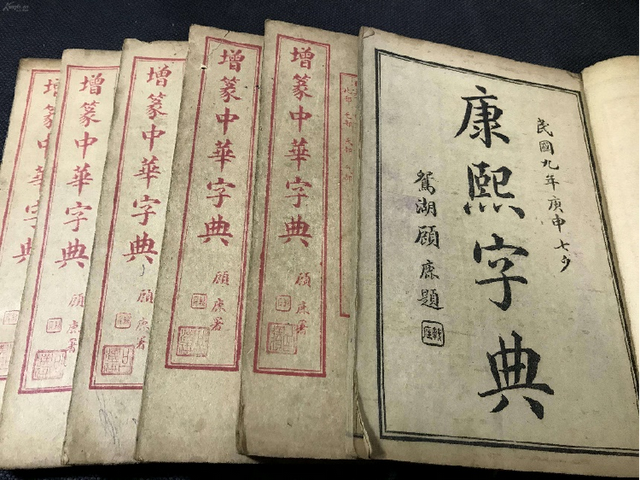 康熙字典
民國九年庚申七夕
鴛湖顧康題
增篆中華字典
顧康署
增篆中華字典
顧康署
增篆中華字典
顧康署
增篆中華字典
顧康署
增篆中華字典